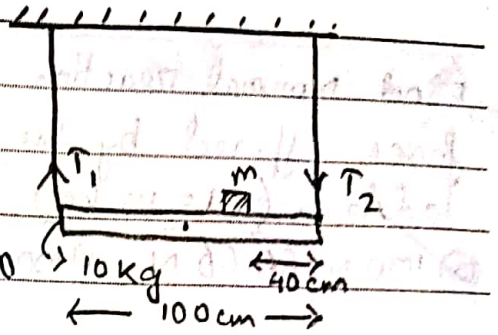 T1
m
T2
10kg
40cm
100cm